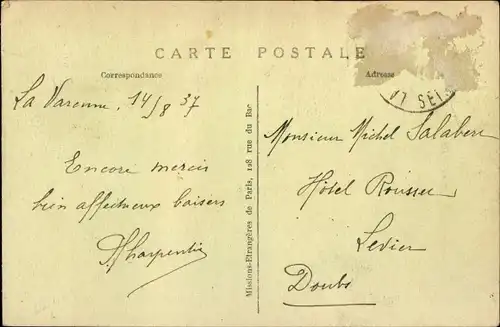 CARTE POSTALE
Correspondance
Adresse
La Varenne, 14/8 37
Encore mercis
bien affectueux baisers
Missions-Etrangères de Paris, 128 rue du Bac
LA SEI
Monsieur Michel Salabert
Hôtel Rousseu
Levier
Doubs